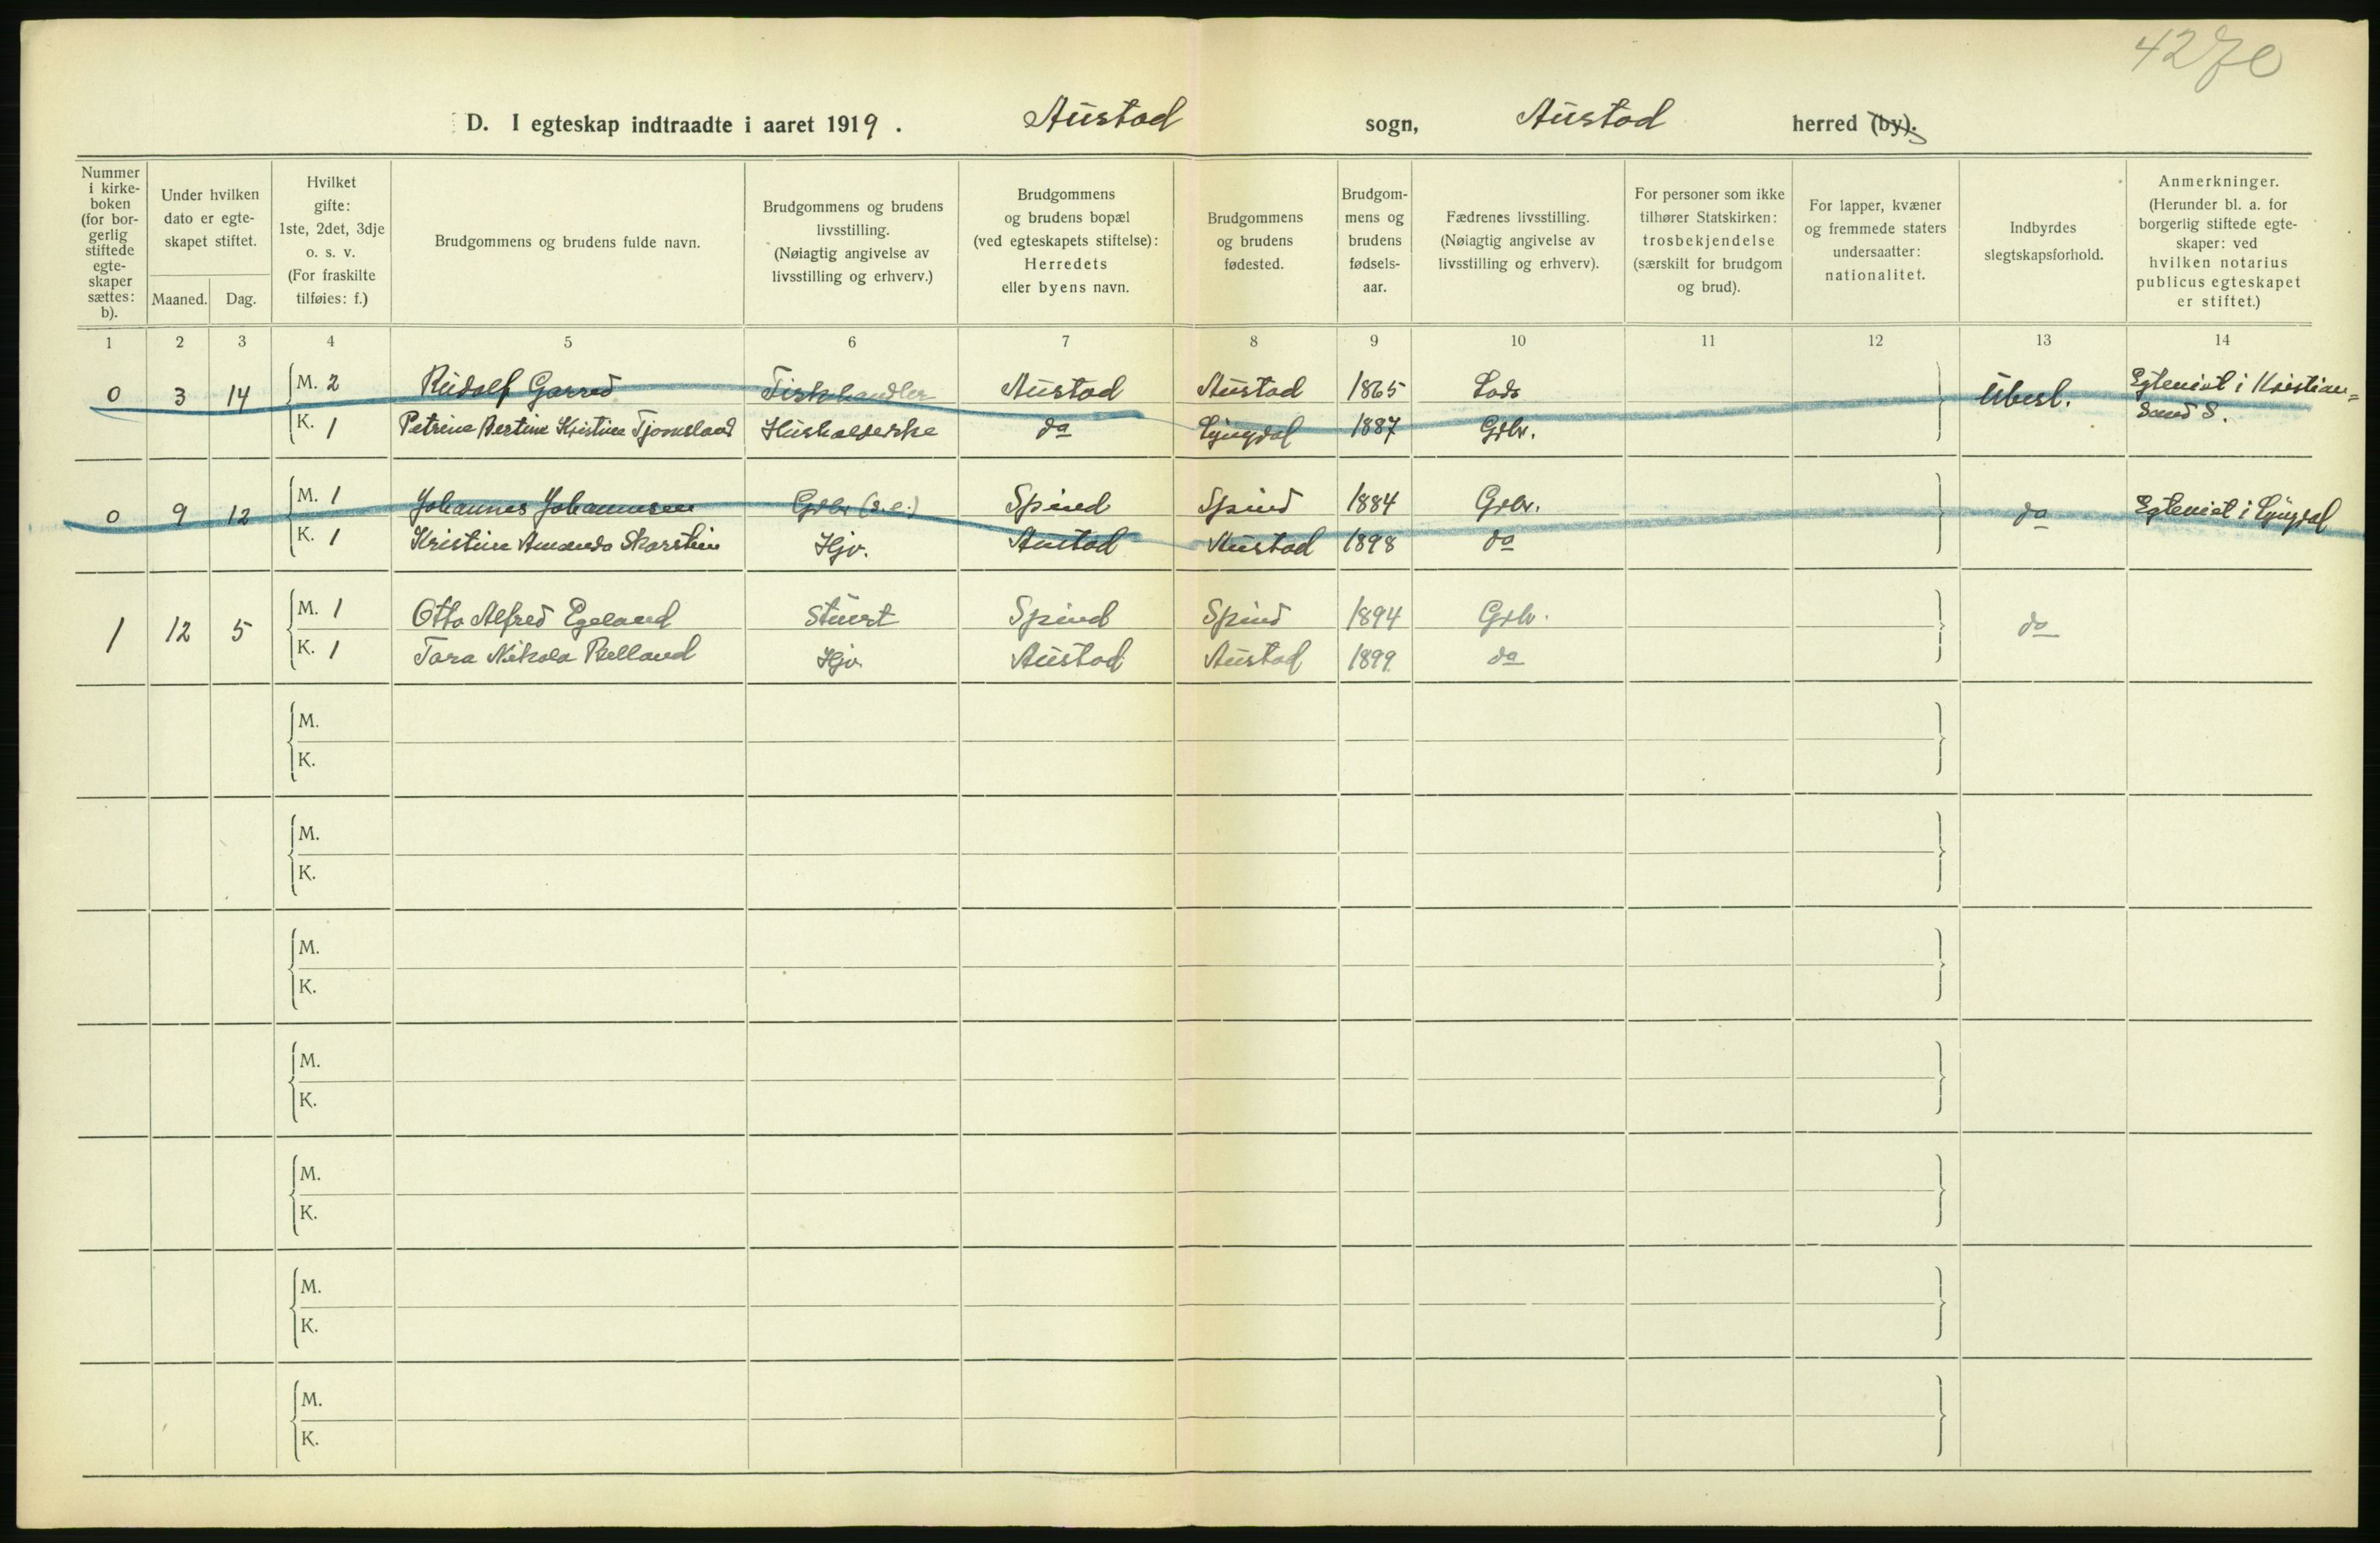 4270
D. I egteskap indtraadte i aaret 1919. Austad sogn, Austad herred (by).
Nummer i kirkeboken (for borgerlig stiftede egteskaper sættes: b).
Under hvilken dato er egteskapet stiftet.
Maaned. Dag.
Hvilket gifte: 1ste, 2det, 3dje o. s. v. (For fraskilte tilføies: f.)
Brudgommens og brudens fulde navn.
Brudgommens og brudens livsstilling. (Nøiagtig angivelse av livsstilling og erhverv.)
Brudgommens og brudens bopæl (ved egteskapets stiftelse): Herredets eller byens navn.
Brudgommens og brudens fødested.
Brudgommens og brudens fødselsaar.
Fædrenes livsstilling. (Nøiagtig angivelse av livsstilling og erhverv).
For personer som ikke tilhører Statskirken: trosbekjendelse (særskilt for brudgom og brud).
For lapper, kvæner og fremmede staters undersaatter: nationalitet.
Indbyrdes slegtskapsforhold.
Anmerkninger. (Herunder bl. a. for borgerlig stiftede egteskaper: ved hvilken notarius publicus egteskapet er stiftet.)
1 2 3 4 5 6 7 8 9 10 11 12 13 14
0 3 14 M. 2 Rudolf Garred Fiskhandler Austad Austad 1865 Lods Ubesl. Egteviet i Kristian=
K. 1 Petrine Bertine Kristine Tjomsland Husholderske do Lyngdal 1887 Grbr. sand S.
0 9 12 M. 1 Johannes Johannesen Grbr (s.e.) Spind Spind 1884 Grbr. do Egteviet i Lyngdal
K. 1 Kristine Amanda Skarstein Hjv. Austad Austad 1898 do
1 12 5 M. 1 Otto Alfred Egeland Stuert Spind Spind 1894 Grbr. do
K. 1 Tara Nikola Belland Hjv. Austad Austad 1899 do
M.
K.
M.
K.
M.
K.
M.
K.
M.
K.
M.
K.
M.
K.